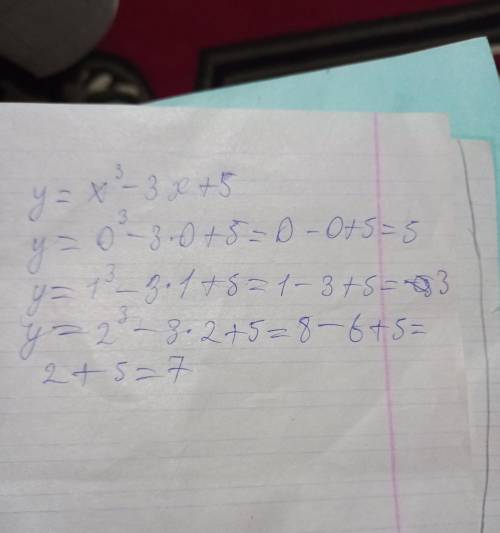 y = x³ - 3x + 5
y = 0³ - 3·0 + 5 = 0 - 0 + 5 = 5
y = 1³ - 3·1 + 5 = 1 - 3 + 5 = 3
y = 2³ - 3·2 + 5 = 8 - 6 + 5 =
2 + 5 = 7